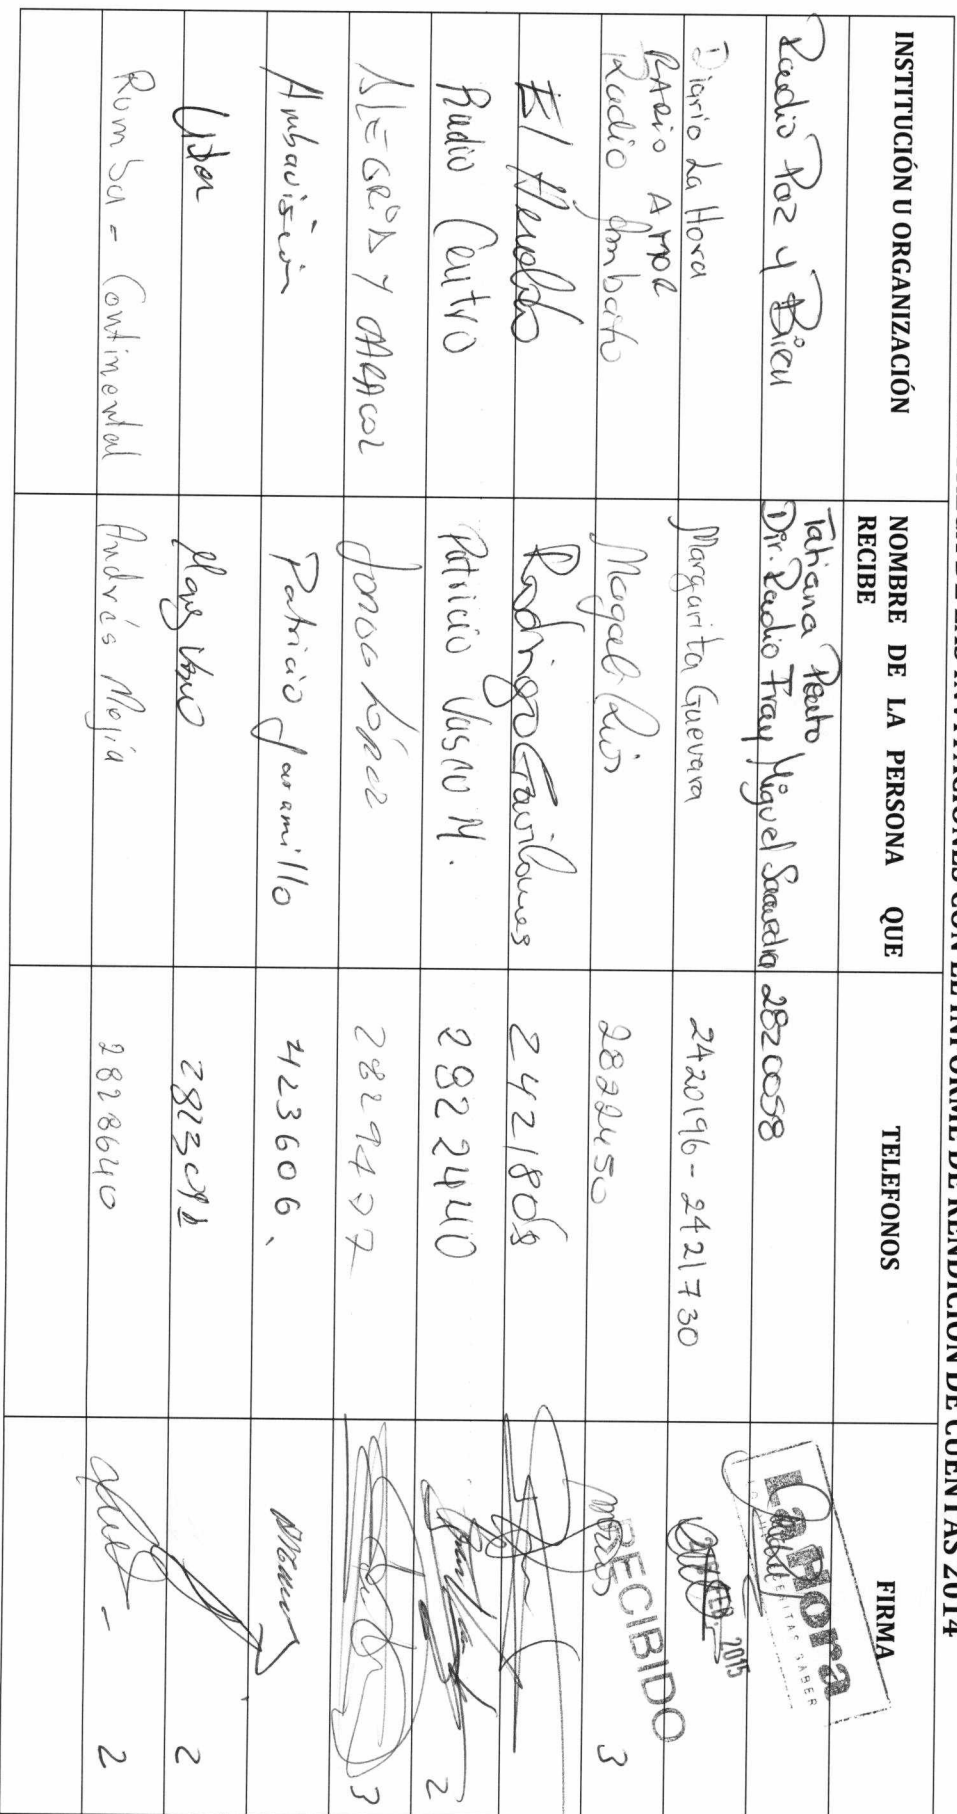 INVITACIONES CON EL INFORME DE RENDICIÓN DE CUENTAS 2014
INSTITUCIÓN U ORGANIZACIÓN
NOMBRE DE LA PERSONA QUE RECIBE
TELEFONOS
FIRMA
Radio Paz y Bien
Tatiana
Dir. Radio Fray Miguel 2820058
La Hora
Diario La Hora
Margarita Guevara
2420196 - 2421730
FEB 2015
RADIO AMOR
Radio Ambato
Magali Ruis
2822450
RECIBIDO
3
El Heraldo
Rodrigo Gavilanes
2421808
Radio Centro
Patricio Vasco M.
2822440
2
ALEGRIA Y CARACOL
López
3
Ambavisión
Patricio Jaramillo
423606.
2
Rumba - Continental
Andrés Mejía
2828640
2